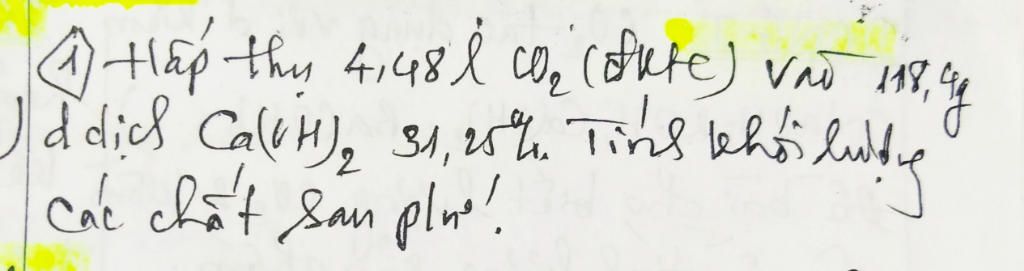 ① Hấp thụ 4,48 l CO₂ (đktc) vào 118,4g
d dịch Ca(OH)₂ 31,25%. Tính khối lượng
các chất sau pư!